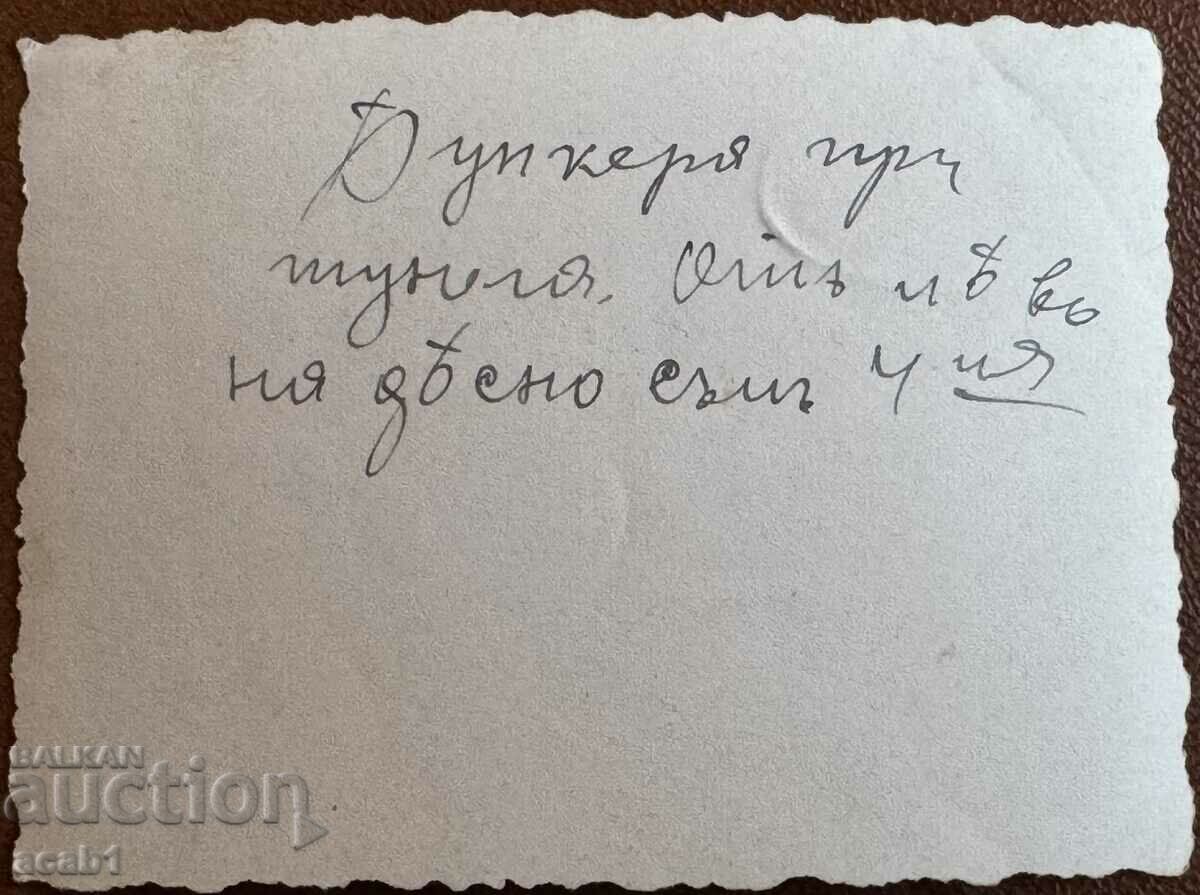 Бункеря при
тунеля. Отъ лѣво
ня дѣсно съмъ 4ия
BALKAN
auction
acab1